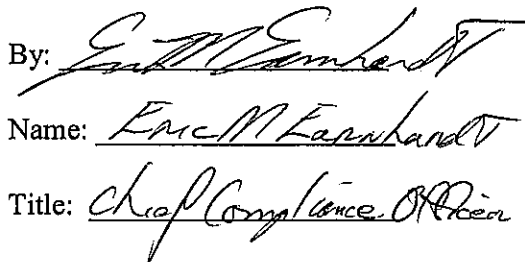 By: Eric M Earnhardt
Name: Eric M Earnhardt
Title: Chief Compliance Officer